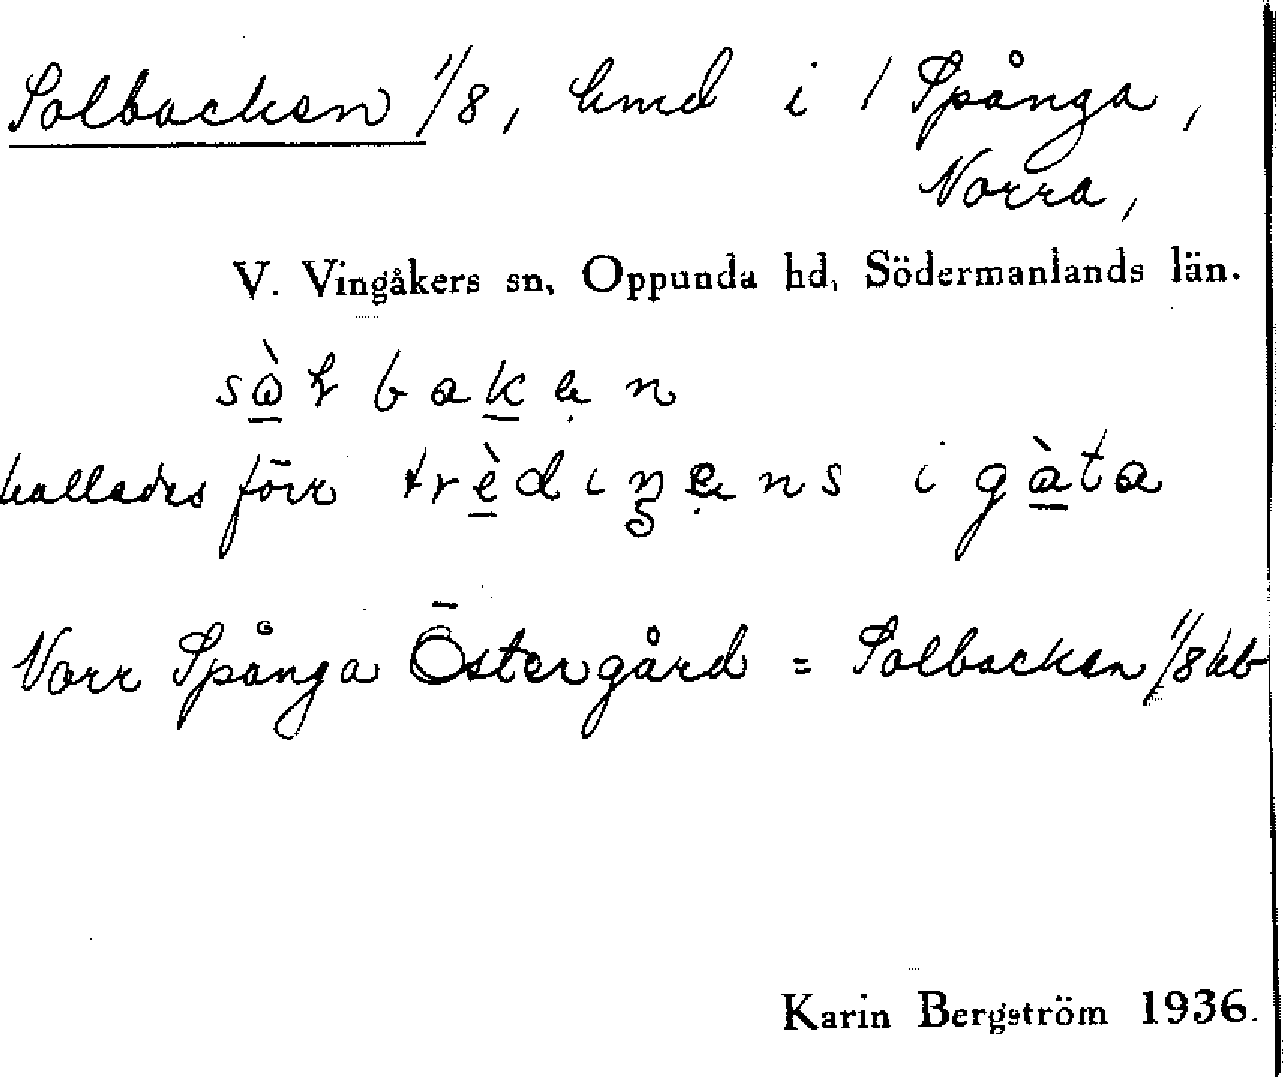 Solbacken 1/8, hmd i 1 Spånga,
Norra,
V. Vingåkers sn, Oppunda hd, Södermanlands län.
kallades förr i
Norr Spånga Östergård = Solbacken 1/8 kb
Karin Bergström 1936.